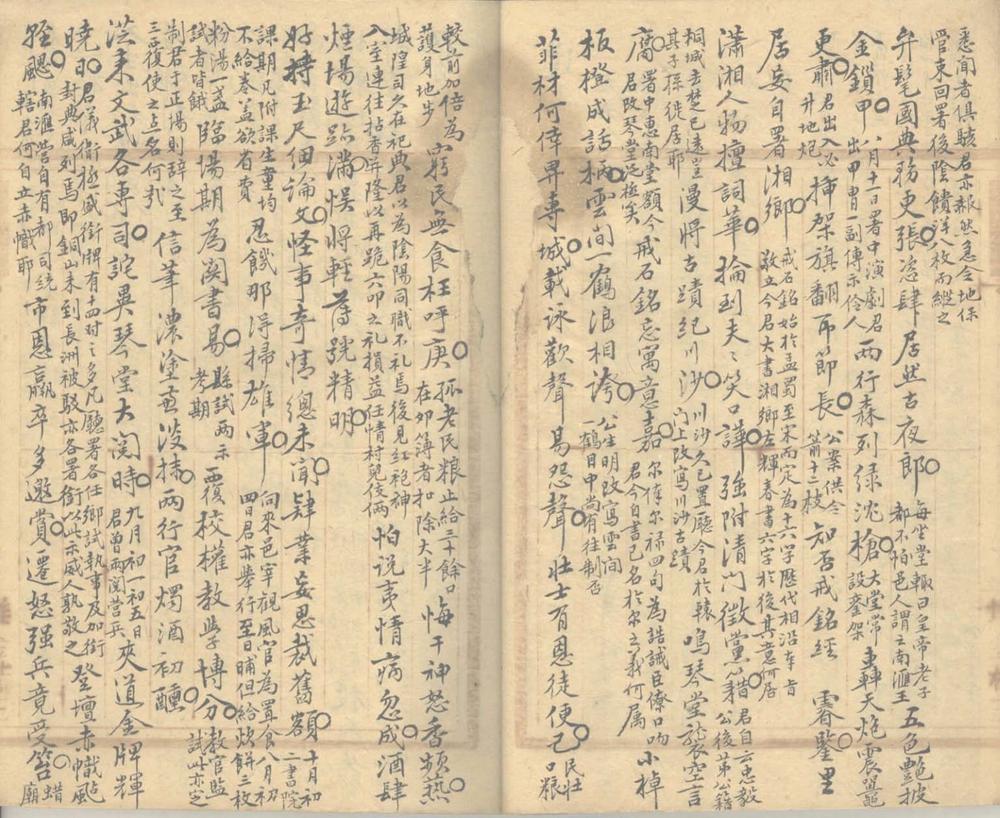 悉聞者俱駭君亦赧然急令地保
管束回署後陰饋洋八枚而縱之
弁髦國典務更張○恣肆居然古夜郎○每坐堂輒曰皇帝老子都不怕邑人謂之南滙王五色艷披
金鎖甲○八月十一日署中演劇君出甲冑一副傳示伶人兩行森列綠沈槍○大堂常設鎗架轟天炮震鼉
更肅君出入必升地炮揷架旗翻節長○公案供令箭十二枝知否戒銘經睿鑒○里
居妄自署湘鄉○戒石銘始於孟蜀至宋而定為十六字歷代相沿敬立今君大書湘鄉左輝春書六字於後其意何居
瀟湘人物擅詞華○掄到夫〻笑口譁○強附清門徵黨籍○君自云忠毅公後第公籍
桐城去楚已遠豈其子孫徙居耶漫將古蹟紀川沙○川沙久已置廳今君於轅門上改寫川沙古蹟鳴琴堂褻空言
廣○署中惠南堂額今君改琴堂泛極矣戒石銘忘寓意嘉○尔俸尔禄四句為誥誡臣僚口吻君今自書己名於尔之義何属小棹
板橙成話柄○雲間一鶴浪相誇○公生明改寫雲間一鶴日中尚有往制否
菲材何倖昇專城○載詠歡聲易怨聲○壯士有恩徒便己○民壯口粮
較前加倍為護身地步窮民無食枉呼庚○孤老民粮止給三十餘口在卯簿者扣除大半悔干神怒香頻爇○
城隍司久在祀典君以為陰陽同職不礼焉後見紅袍神入室連往拈香并隆以再跪六叩之礼損益任情村兒伎倆怕説夷情病忽成○酒肆
煙塲遊跡滿○悞將輕薄號精明○
好持玉尺細論文○怪事奇情總未聞○肄業妄思裁舊額○十月初二書院
課期凡附課生童均不給卷蓋欲省費忍饑那得掃雄軍○向來邑宰觀風官為置食八月初四日君亦舉行至日晡但給炊餅三枚
粉湯一盞試者皆餓臨塲期為閱書易○縣試兩示考期覆校權教學博分○教官監試此亦定
制君于正塲則辞之至三覆使之点名何哉信筆濃塗並淡抹○兩行官燭酒初醺○
從來文武各專司○詫異琴堂大閱時○九月初一初五日君曾兩閱營兵夾道金牌輝
曉日○君儀衛極盛銜牌有十四对之多凡廳署各任鄉試執事及加銜封典咸列焉即銅山未到長洲被駁亦各署銜以此示威人孰敬之登壇赤幟颭
輕颸○南滙營自有都司統轄君何自立赤幟耶市恩羸卒多邀賞○遷怒强兵竟受笞○蜡廟